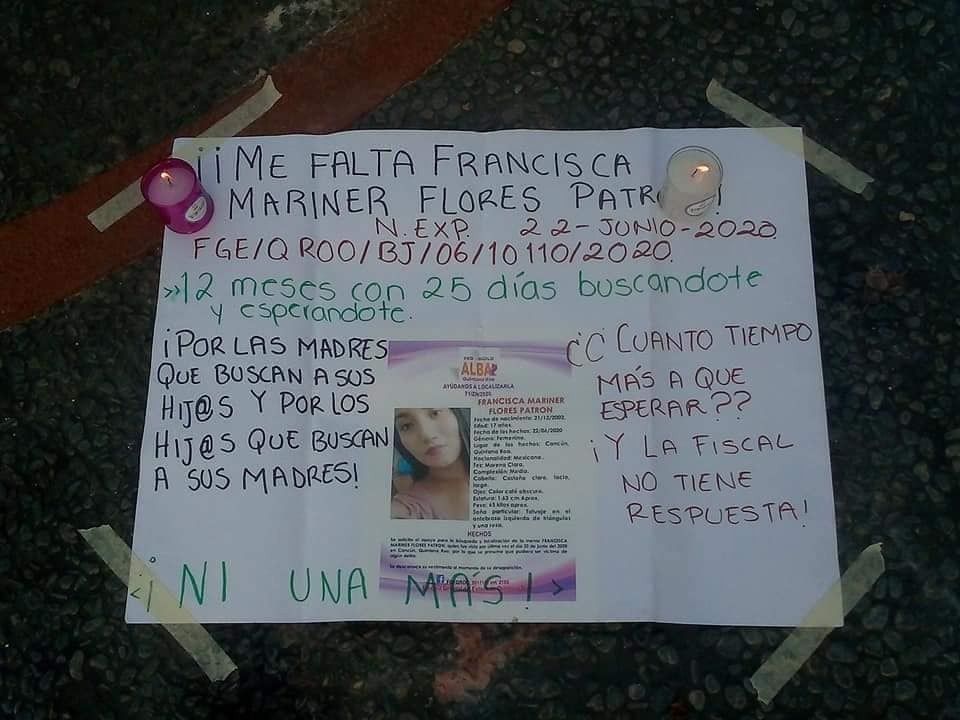 ¡¡ME FALTA FRANCISCA
MARINER FLORES PATR !
N. EXP. 22-JUNIO-2020
FGE/QROO/BJ/06/10110/2020.
»12 meses con 25 días buscandote
y esperandote.
¡POR LAS MADRES
QUE BUSCAN A SUS
HIJ@S Y POR LOS
HIJ@S QUE BUSCAN
A SUS MADRES!
ALBA
Quintana Roo
AYÚDANOS A LOCALIZARLA
FRANCISCA MARINER
FLORES PATRON
Fecha de nacimiento: 21/12/2002.
Edad: 17 años.
Fecha de los hechos: 22/06/2020
Género: Femenino.
Lugar de los hechos: Cancún,
Quintana Roo.
Nacionalidad: Mexicana.
Tez: Morena Clara.
Complexión: Media.
Cabello: Castaño claro, lacio,
largo.
Ojos: Color café obscuro.
Estatura: 1.63 cm Aprox.
Peso: 65 kilos aprox.
Seña particular: Tatuaje en el
antebrazo izquierdo de triángulos
y una rosa.
HECHOS
Se solicita el apoyo para la búsqueda y localización de la menor FRANCISCA
MARINER FLORES PATRON, quien fue vista por última vez el día 22 de junio del 2020
en Cancún, Quintana Roo, por lo que se presume que pudiera ser víctima de
algún delito.
Se desconoce su vestimenta al momento de su desaparición.
¿¿CUANTO TIEMPO
MÁS A QUE
ESPERAR??
¡Y LA FISCAL
NO TIENE
RESPUESTA!
<¡NI UNA MÁS!>